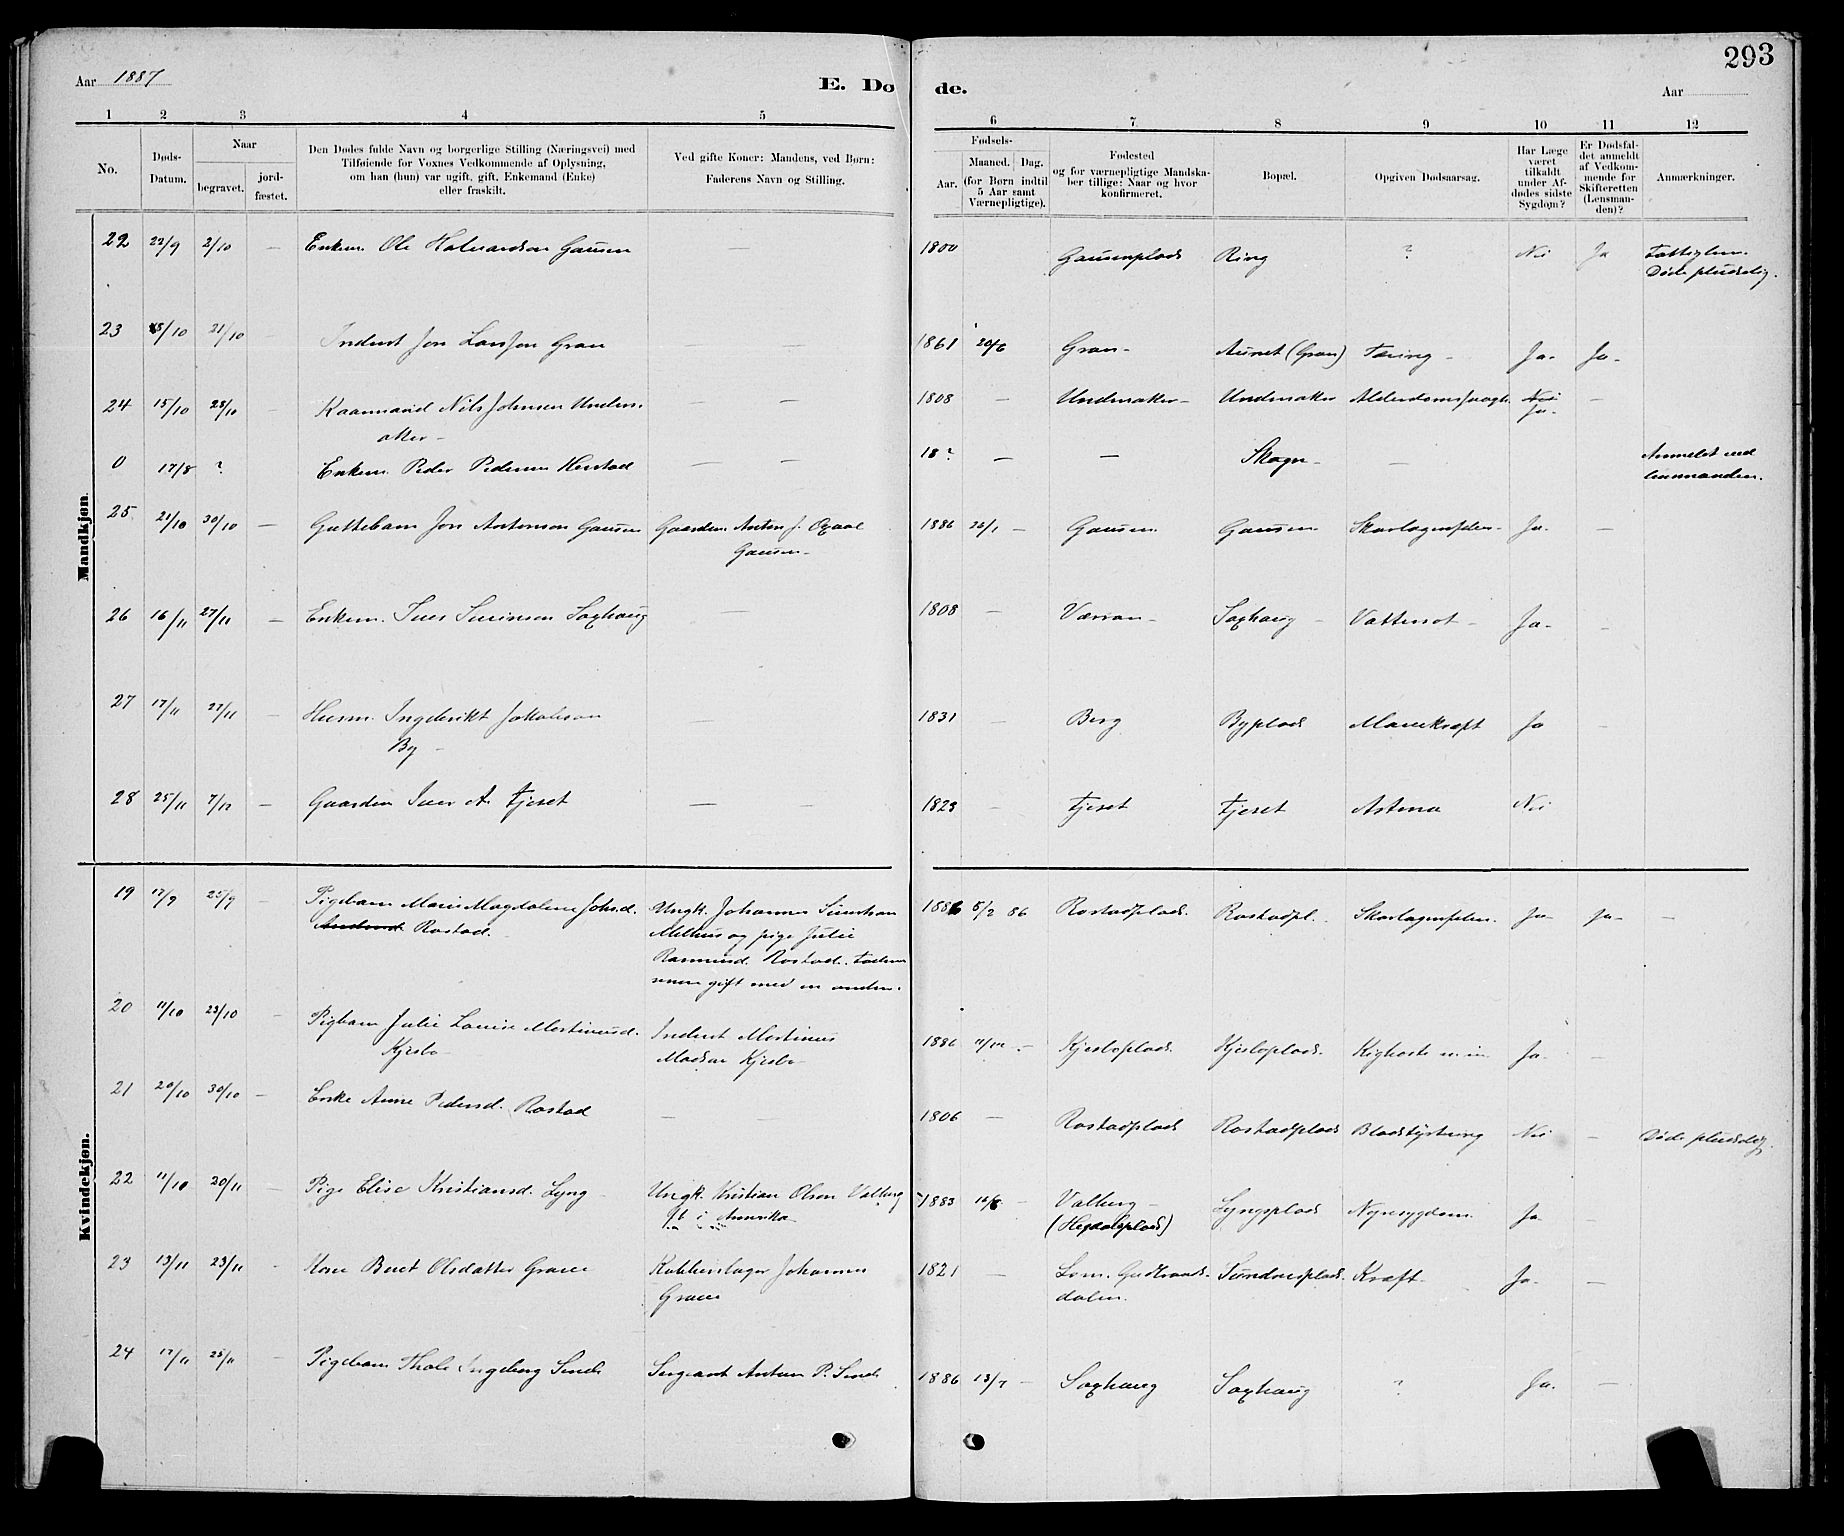 293
Aar 1887
E. Dø de.
Aar
1 2 3 4 5 6 7 8 9 10 11 12
No.
Døds-
Datum.
Naar
begravet.
jord-
fæstet.
Den Dødes fulde Navn og borgerlige Stilling (Næringsvei) med
Tilføiende for Voxnes Vedkommende af Oplysning,
om han (hun) var ugift, gift, Enkemand (Enke)
eller fraskilt.
Ved gifte Koner: Mandens, ved Børn:
Faderens Navn og Stilling.
Fødsels-
Aar.
Maaned. Dag.
(for Børn indtil
5 Aar samt
Værnepligtige).
Fødested
og for værnepligtige Mandska-
ber tillige: Naar og hvor
konfirmeret.
Bopæl.
Opgiven Dødsaarsag.
Har Læge
været
tilkaldt
under Af-
dødes sidste
Sygdom?
Er Dødsfal-
det anmeldt
af Vedkom-
mende for
Skifteretten
(Lensman-
den)?
Anmærkninger.
Mandkjøn.
22 22/9 2/10 — Enkem. Ole Halvardsen Gausen — 1800 Gausenplads Ring ? Nei Ja Fattiglem.
Døde pludselig.
23 15/10 21/10 Inderst Jon Larssen Gran — — 1861 20/6 Gran - Aunet (Gran) Tæring - Ja - Ja -
24 15/10 23/10 Kaarmand Nils Johnsen Under- — — 1808 — Undersaker - Undersaker Ja - —
aker -
0 17/8 ? Enkem. Peder Pedersen — — 18? — — Skogn - — Anmeldt ved
lensmanden.
25 21/10 30/10 — Guttebarn Jon Antonson Gausen Gaardm. Anton J. 1886 26/1 — Gausen Gausen Skarlagensfeber - Ja - —
Gausen -
26 16/11 27/11 — Enkem. Iver Saxhaug — 1808 — Værran - Saxhaug - Vattersot - Ja - —
27 17/11 27/11 — Husm. Ingebrikt Jakobson — 1831 — Berg Byplads Mavekræft Ja —
By -
28 25/11 7/12 — Gaardm. Iver A. Tjeset — — 1823 — Tjeset Tjeset Astma Nei
Kvindekjøn.
19 17/9 25/9 — Pigebarn Marie Magdalene Johsd. Ungk. Johannes 1886 5/2 86 Rostadplads. Rostadpl. Skarlagensfeber. Ja - Ja - —
Rostad. - Melhus og pige Julie
Rasmusd. Rostad.
gift med en anden.
20 11/10 23/10 — Pigbarn Julie Louise Martinusd. Inderst Martinus 1886 Kjesboplads. Kjesboplads. Kighoste Ja - —
Kjesbo - Madsen Kjesbo -
21 20/10 30/10 — Enke Anne Pedersd. Rostad — — 1806 — Rostadplads Rostadplads Blodstyrtning Nei — Døde pludselig.
22 11/10 20/11 Pige Elise Kristiansd. Lyng - Ungk. Kristian Olsen Valberg 1883 Valberg - Lyngsplads Nyresygdom Ja - —
i Amerika (Hegdalsplads)
23 13/11 23/11 - Kone Beret Olsdatter Graue Kobberslager Johannes 1821 — Lom. Gudbrands- Sundnesplads. Kræft - Ja - —
Graue dalen.
24 17/11 25/11 — Pigebarn Thale Ingeborg Sende Sergeant Anton P. Sende 1886 13/7 — Saxhaug Saxhaug ? Ja. —